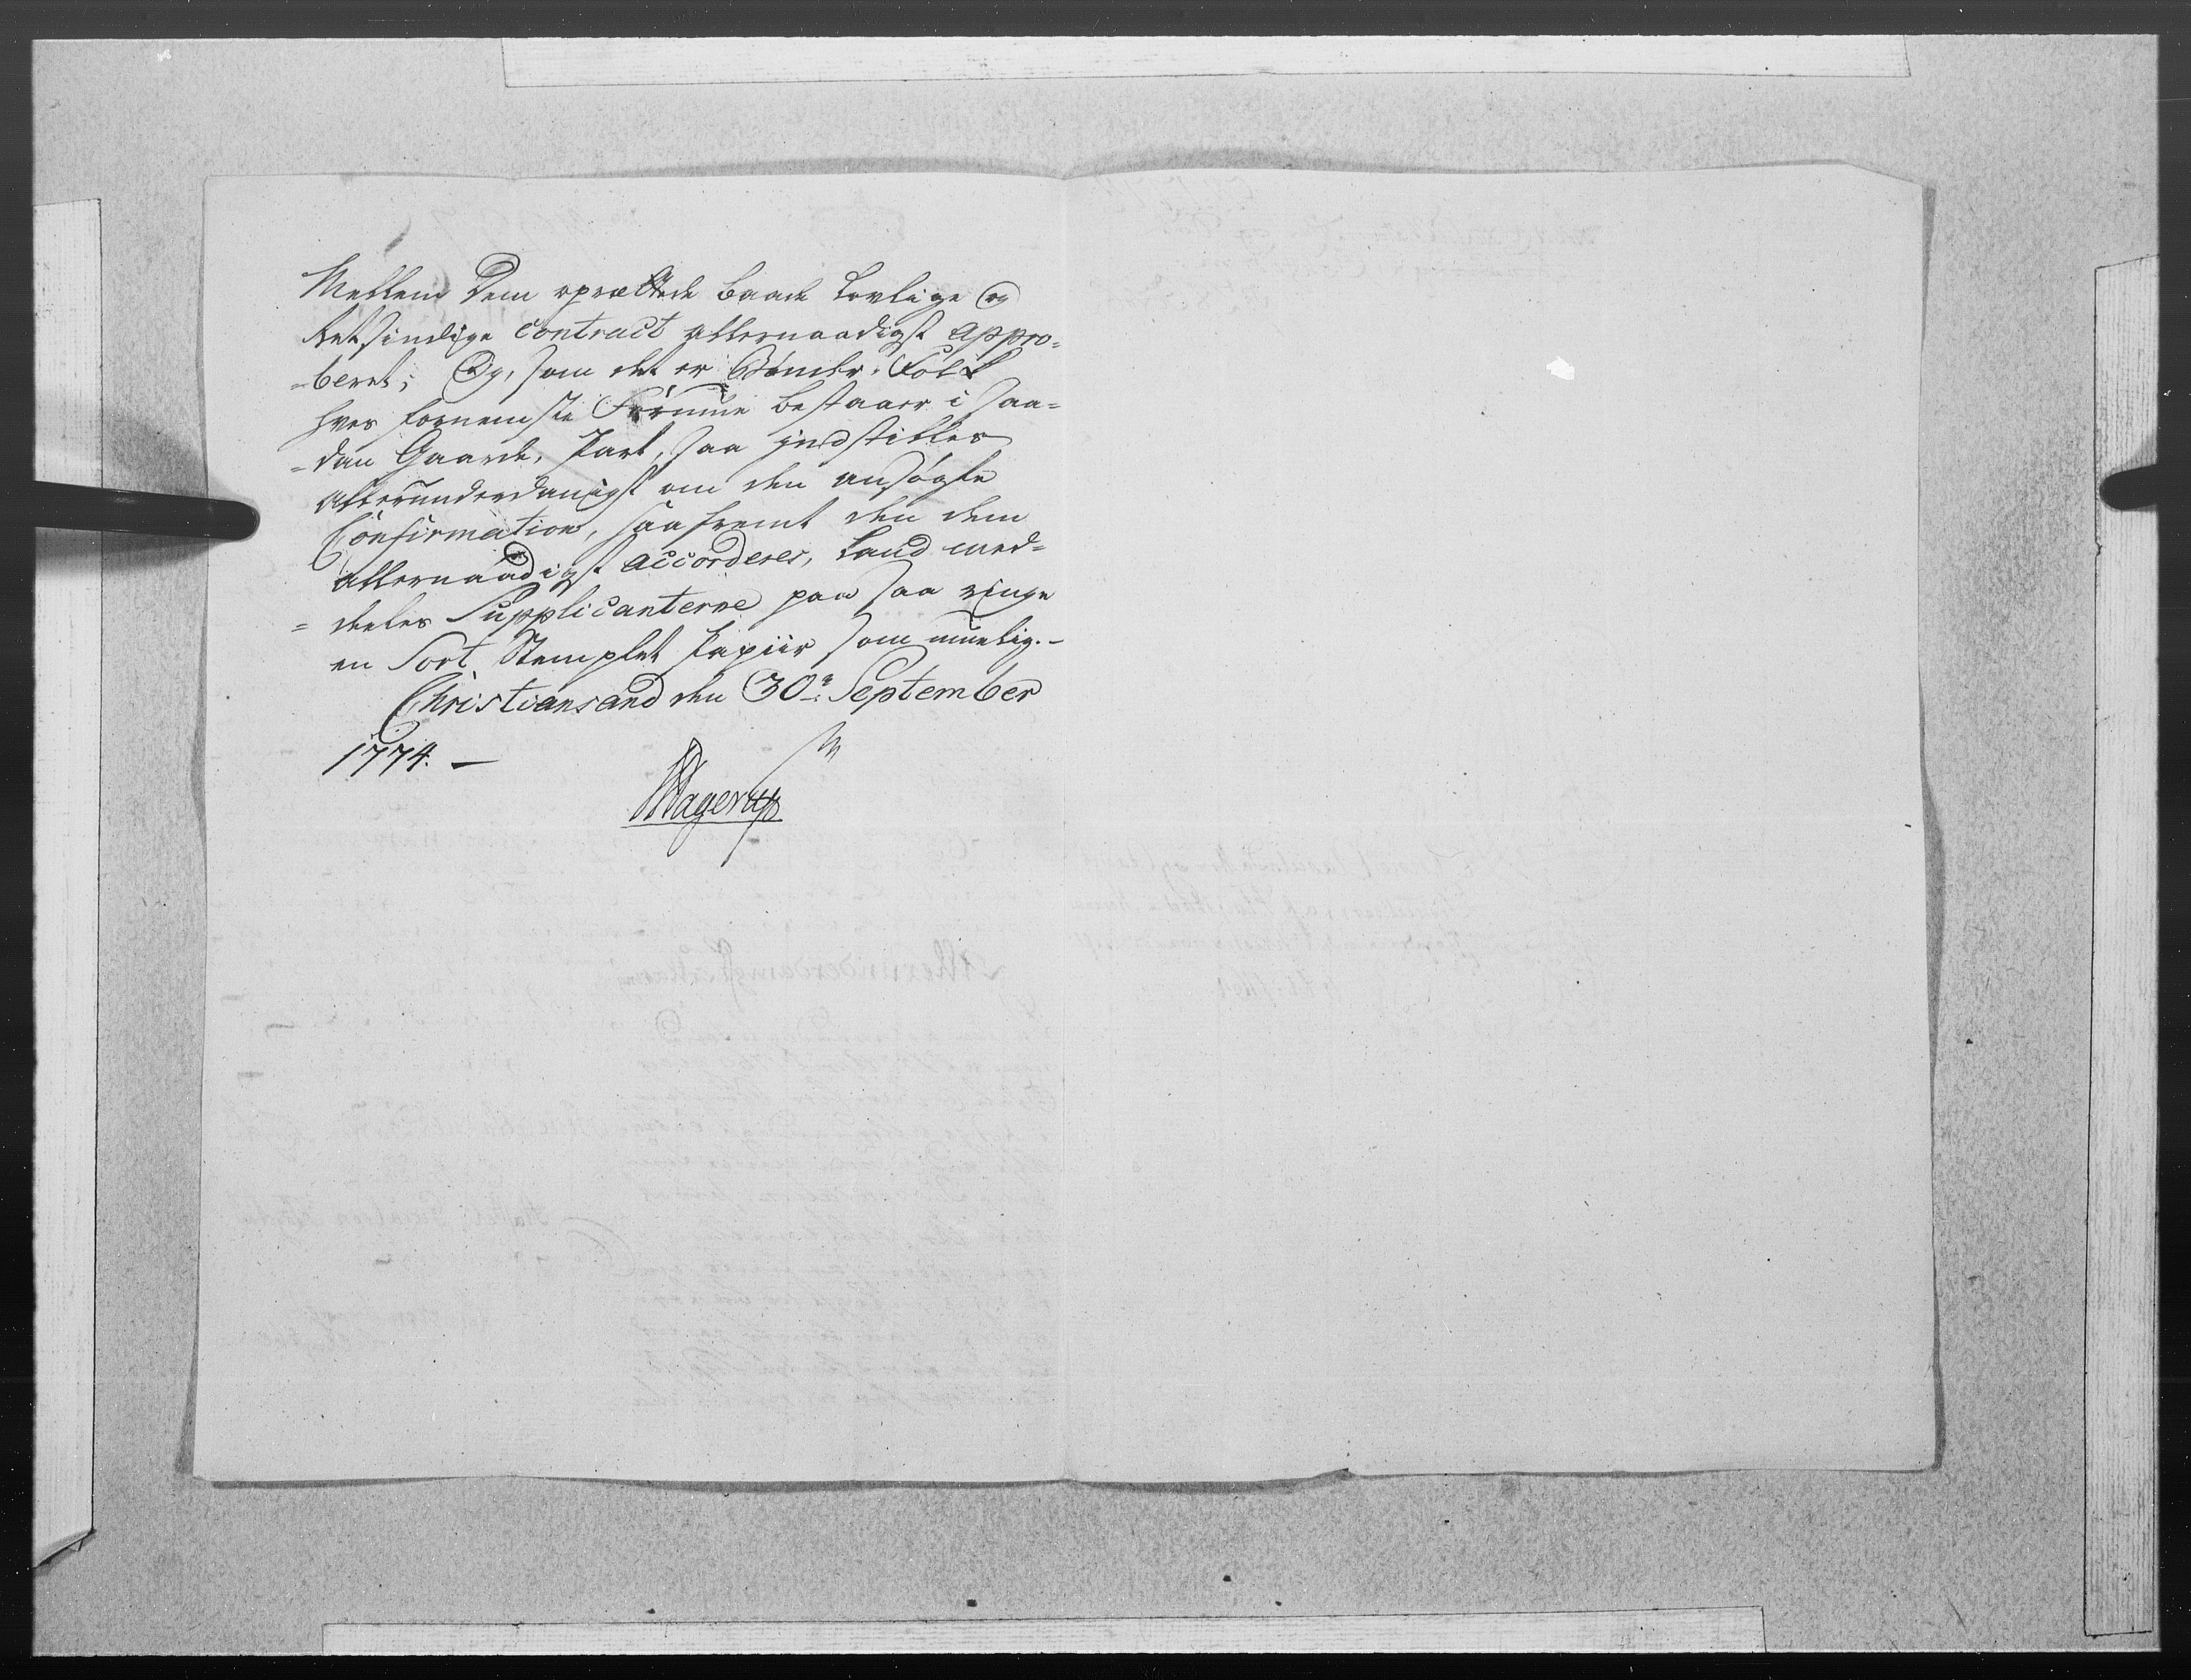 Mellem Dem oprættede baade Lovlige og
Retsindige Contract allernaadigst appro-
-beret; Og, som det er Bønder-Folk
hvis fornemste Formue bestaaer i saa-
-dan Gaarde-Part, saa indstilles
allerunderdanigst om den ansøgte
Confirmation, saafremt den dem
allernaadigst accorderes, kand med-
=deeles Supplicanterne paa saa ringe
en Sort Stemplet Papiir som muelig.-
Christiansand den 30te September
1774. -
Hagerup